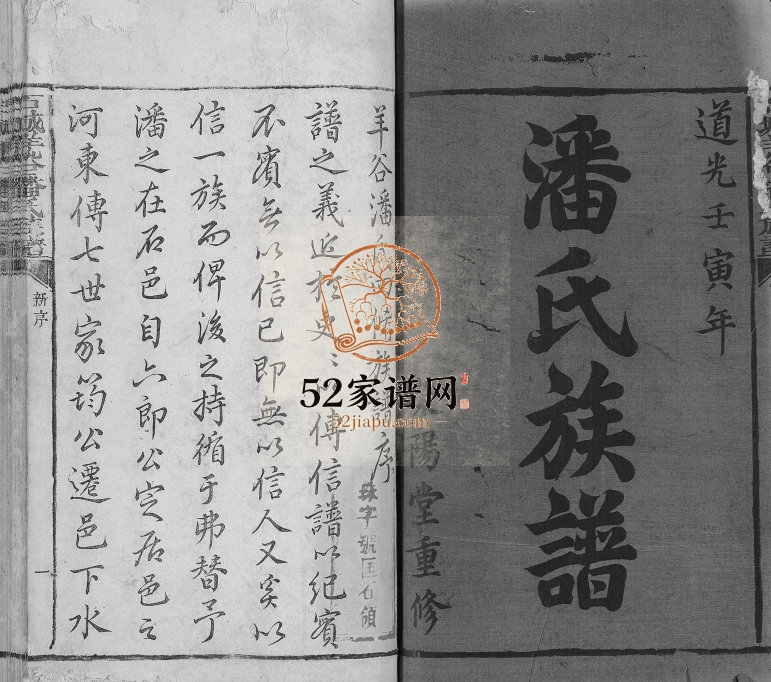 道光壬寅年
潘氏族譜
陽堂重修
羊谷潘氏
族譜序
譜之義近於史〻傳信譜以紀實
不實無以信已即無以信人又奚以
信一族而俾後之持循于弗替予
潘之在石邑自六郎公定居邑之
河東傳七世家筠公遷邑下水
新序
一
52家谱网
52jiapu.com